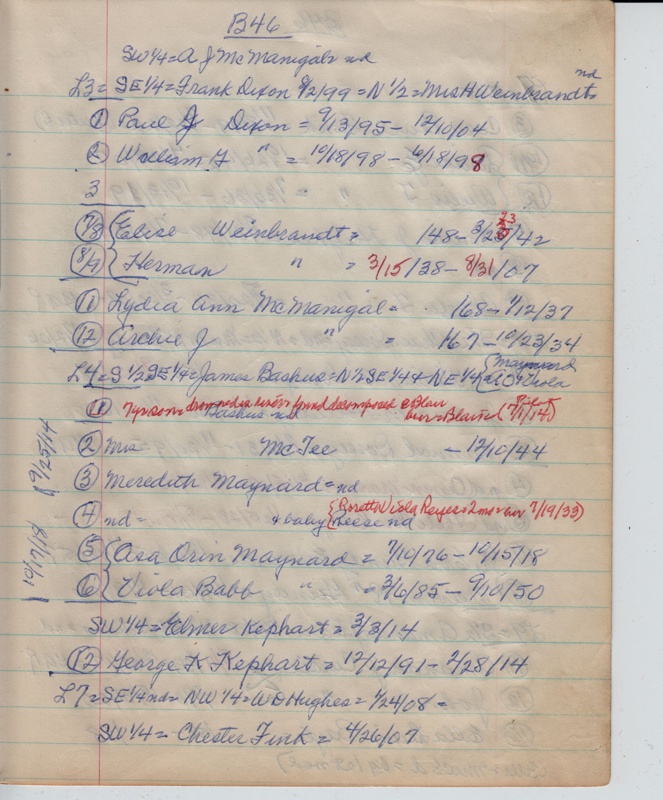 B46
SW 1/4 = A J McManigals nd
L3 = SE 1/4 = Frank Dixon 8/2/99 = N 1/2 = Mrs H Weinbrandts nd
① Paul J Dixon = 9/13/95 - 12/10/04
② William F " = 10/18/98 - 6/18/98
3
7/8 { Elise Weinbrandt = 148 - 3/23/42
8/9 { Herman " = 3/15/38 - 8/31/07
⑪ Lydia Ann McManigal = 168 - 1/12/37
⑫ Archie J " = 167 - 10/23/34
L4 = S 1/2 SE 1/4 = James Bashus = N 1/2 SE 1/4 + NE 1/4 = { Maynard AO & Viola
① Bashus nd Tyson = drowned in river found decomposed @ Blair bur = Blair
② Mrs McTee - 12/10/44
③ Meredith Maynard = nd
④ nd = & baby Reese nd { Loretta Viola Reyes = 2 mo = bur 7/19/33)
⑤ { Asa Orin Maynard = 7/10/76 - 10/15/18
⑥ { Viola Babb " = 3/6/85 - 9/10/50
10/17/18 9/25/14
SW 1/4 = Elmer Kephart = 3/3/14
⑫ George K Kephart = 12/12/91 - 2/28/14
L7 = SE 1/4 nd = NW 1/4 = W D Hughes = 1/24/08 =
SW 1/4 = Chester Fink = 4/26/07